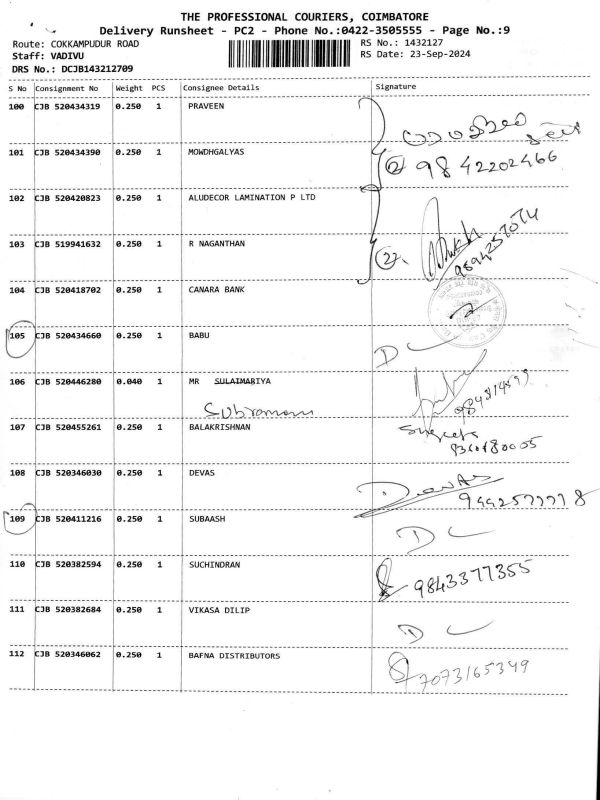 THE PROFESSIONAL COURIERS, COIMBATORE
Delivery Runsheet - PC2 - Phone No.:0422-3505555 - Page No.:9
Route: COKKAMPUDUR ROAD
RS No.: 1432127
Staff: VADIVU
RS Date: 23-Sep-2024
DRS No.: DCJB143212709
S No Consignment No Weight PCS Consignee Details Signature
100 CJB 520434319 0.250 1 PRAVEEN
101 CJB 520434390 0.250 1 MOWDHGALYAS
② 9842202466
102 CJB 520420823 0.250 1 ALUDECOR LAMINATION P LTD
103 CJB 519941632 0.250 1 R NAGANTHAN
9894257074
104 CJB 520418702 0.250 1 CANARA BANK
105 CJB 520434660 0.250 1 BABU
DL
106 CJB 520446280 0.040 1 MR SULAIMARIYA
Subramani
107 CJB 520455261 0.250 1 BALAKRISHNAN
108 CJB 520346030 0.250 1 DEVAS
Devas
109 CJB 520411216 0.250 1 SUBAASH
DL
110 CJB 520382594 0.250 1 SUCHINDRAN
9843377355
111 CJB 520382684 0.250 1 VIKASA DILIP
DL
112 CJB 520346062 0.250 1 BAFNA DISTRIBUTORS
7073165349